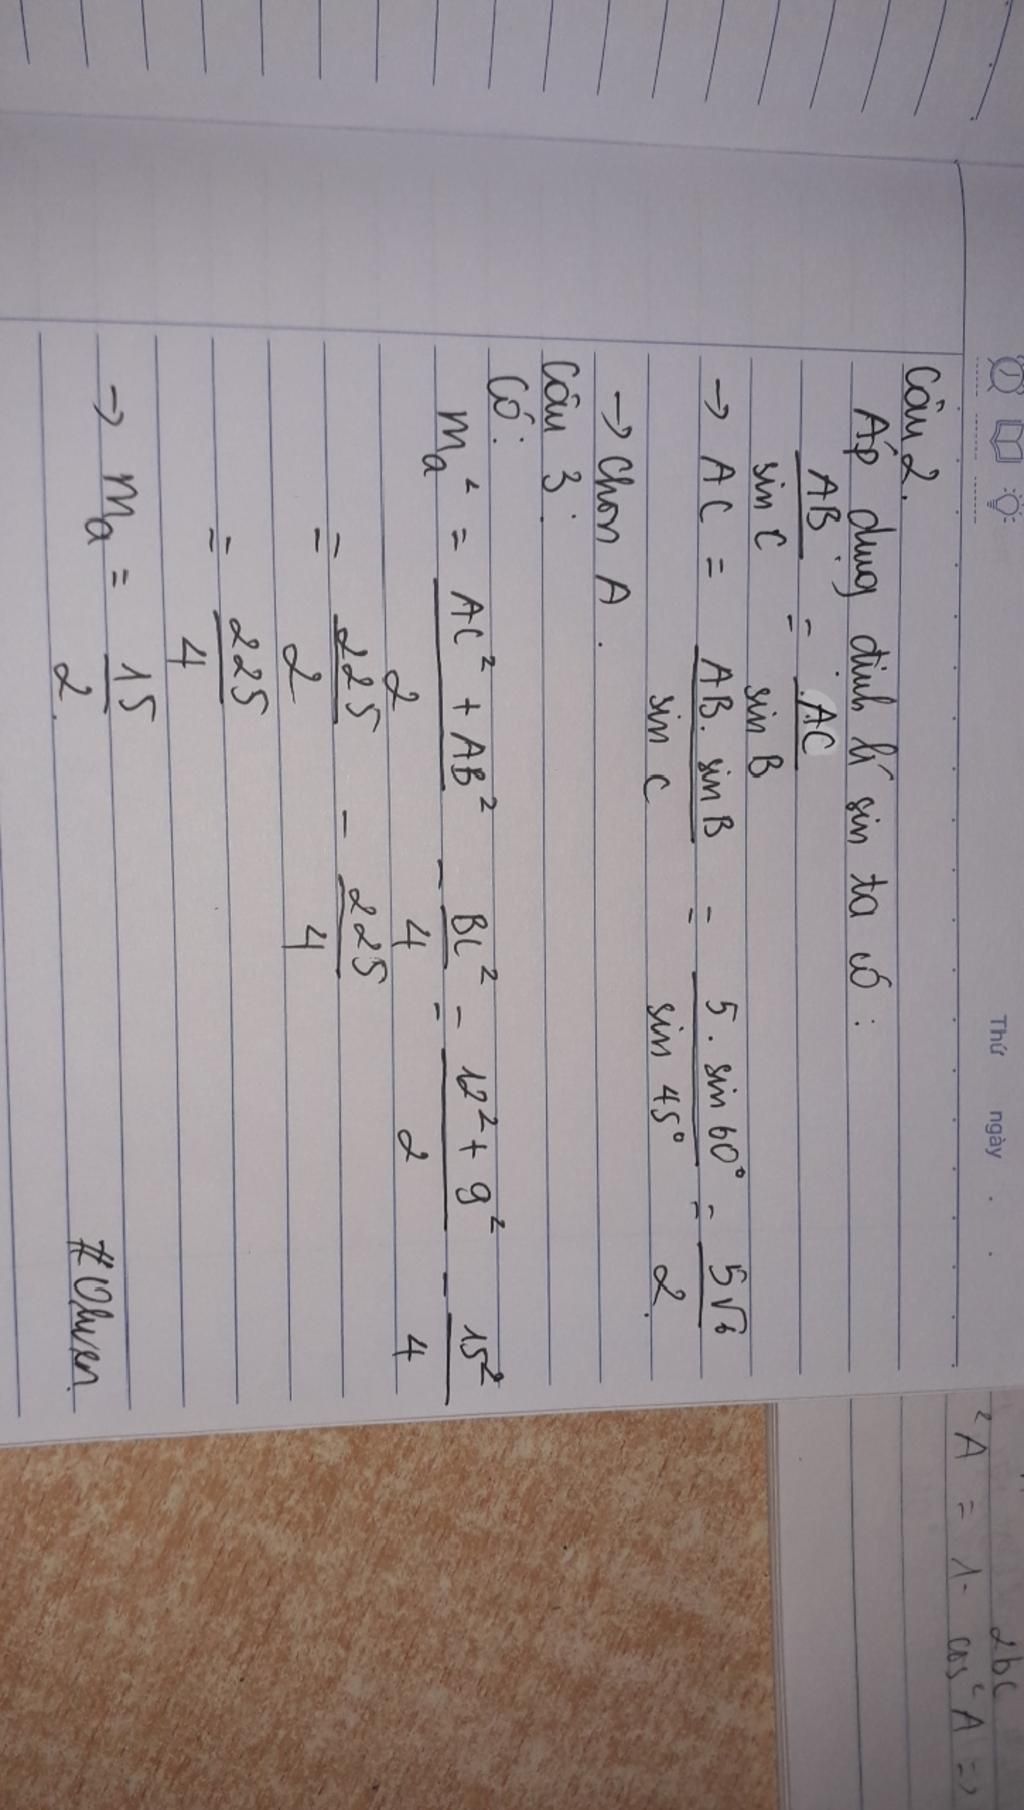 Thứ ngày . .
Câu 2.
Áp dụng định lí sin ta có :
AB / sin C = AC / sin B
→ AC = AB. sin B / sin C = 5. sin 60° / sin 45° = 5√6 / 2.
→ Chọn A.
Câu 3.
Có:
mₐ² = AC² + AB² / 2 - BC² / 4 = 12² + 9² / 2 - 15² / 4
= 225 / 2 - 225 / 4
= 225 / 4
→ mₐ = 15 / 2.
2bc
²A = 1 - cos²A =>